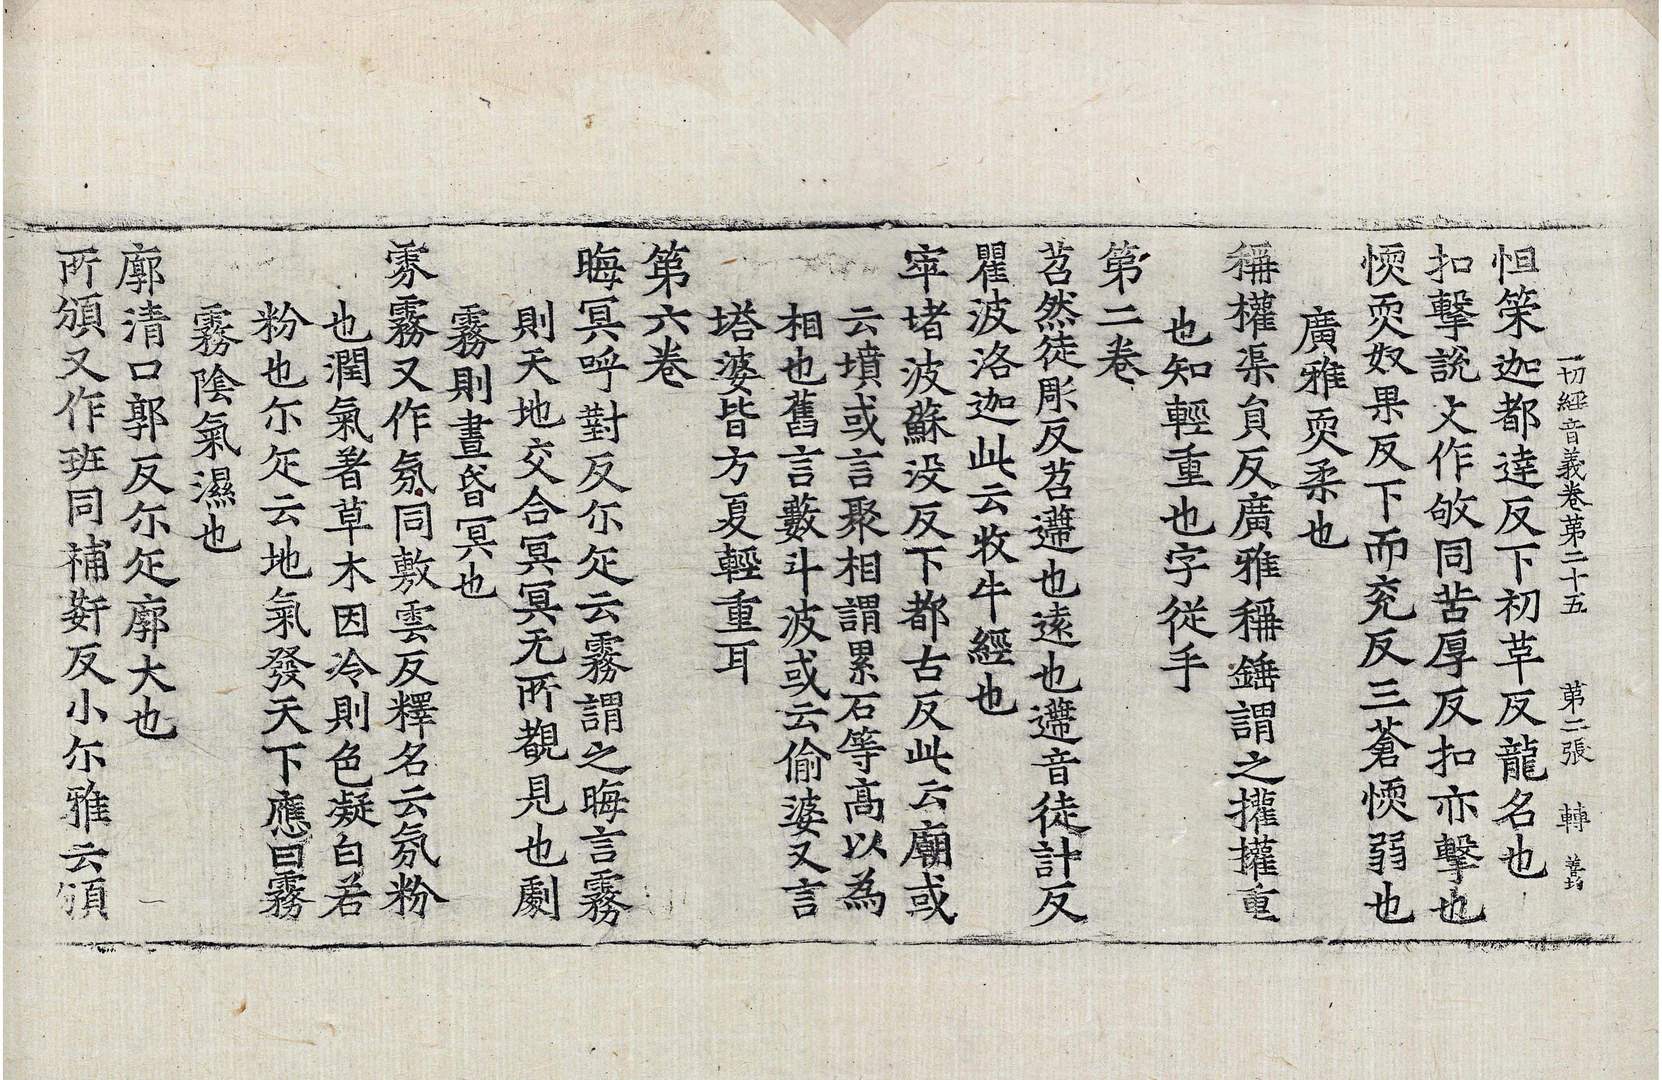 一切經音義卷第二十五　第二張　轉
怛策迦都達反下初革反龍名也
扣擊說文作敂同苦厚反扣亦擊也
愞耎奴果反下而兖反三蒼愞弱也
廣雅耎柔也
稱權渠負反廣雅稱錘謂之權權重
也知輕重也字從手
第二卷
苕然徒彫反苕遰也遠也遰音徒計反
瞿波洛迦此云牧牛經也
窣堵波蘇没反下都古反此云廟或
云墳或言聚相謂累石等高以為
相也舊言藪斗波或云偷婆又言
塔婆皆方夏輕重耳
第六卷
晦冥呼對反尒疋云霧謂之晦言霧
則天地交合冥冥无所覩見也劇
霧則晝昏冥也
雰霧又作氛同敷雲反釋名云氛粉
也潤氣著草木因冷則色凝白若
粉也尒疋云地氣發天下應曰霧
霧陰氣濕也
廓清口郭反尒疋廓大也
所頒又作班同補姧反小尒雅云頒